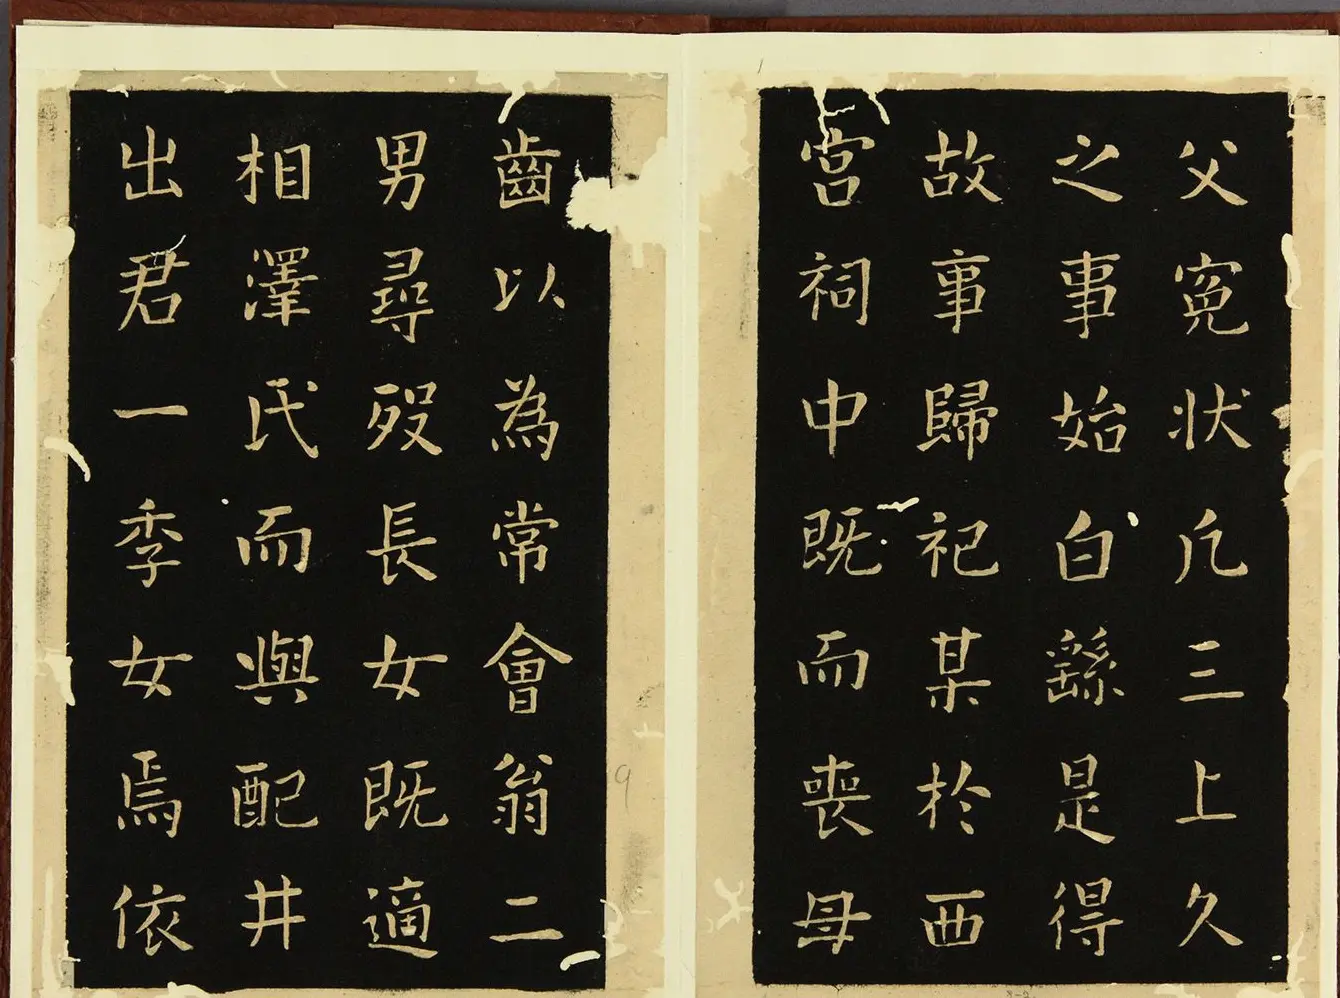 父寃状凢三上久
之事始白繇是得
故事歸祀某於西
宫祠中既而喪母
齒以為常會翁二
男尋殁長女既適
相澤氏而與配井
出君一季女焉依
9